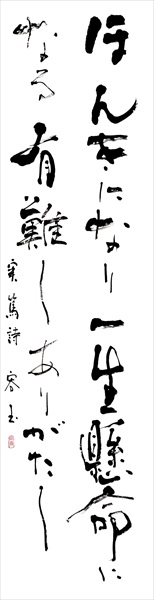 ほんきになり一生懸命に
なれる有難しありがたし
実篤詩 容玉